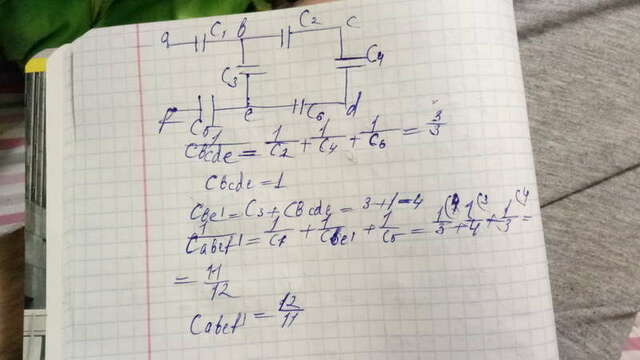 a C₁ b C₂ c
C₃ C₄
f C₅ e C₆ d
1/Cbcde = 1/C₂ + 1/C₄ + 1/C₆ = 3/3
Cbcde = 1
Cbe' = C₃ + Cbcde = 3+1=4
1/Cabef' = 1/C₁ + 1/Cbe' + 1/C₅ = 1/3 (4 + 1/4 (3 + 1/3 (4 =
= 11/12
Cabef' = 12/11